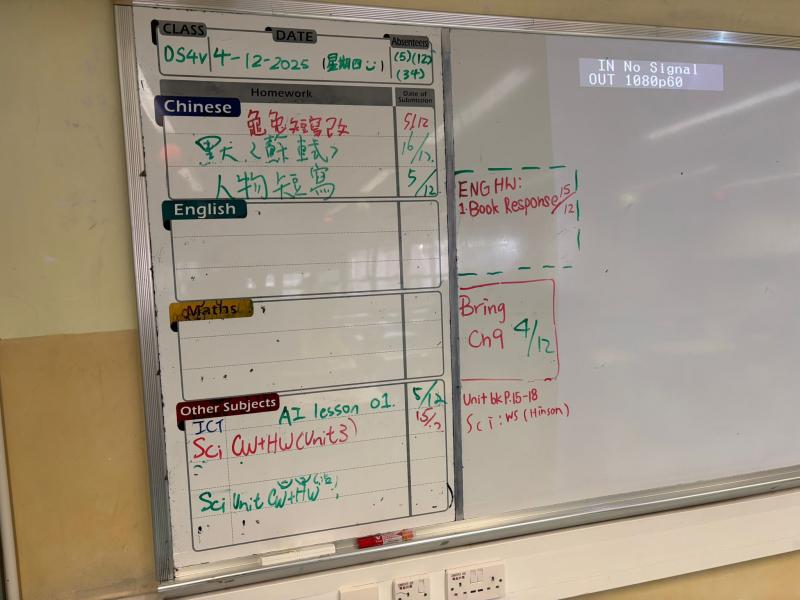 CLASS
DATE
Absentees
DS4V 4-12-2025 (星期四)
(5)(12)
(34)
Homework
Date of Submission
Chinese
短寫改 5/12
默 〈蘇軾〉 16/12
人物短寫 5/12
English
Maths
Other Subjects
ICT AI lesson 01. 5/12
Sci CW+HW (Unit3)
Sci Unit CW+HW
IN No Signal
OUT 1080p60
ENG HW:
1. Book Response 15/12
Bring
Ch9 4/12
Unit bk P.15-18
Sci: WS (Hinson)